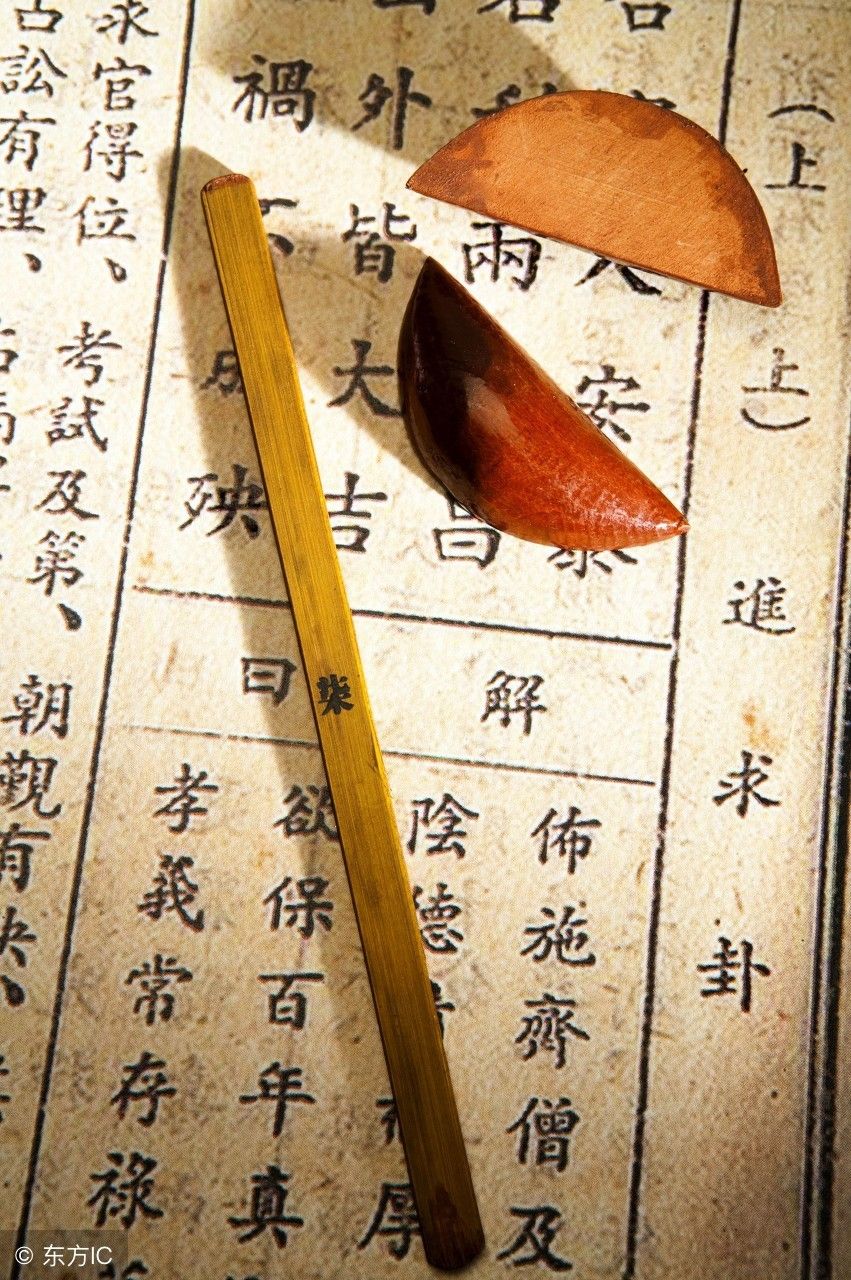 (上上)進求卦
人安泰
兩昌
外皆大吉
禍不殃
解曰
佈施齋僧及
陰德厚
欲保百年真
孝義常存祿
求官得位、考試及第、朝有
訟有理、
柒
© 东方IC